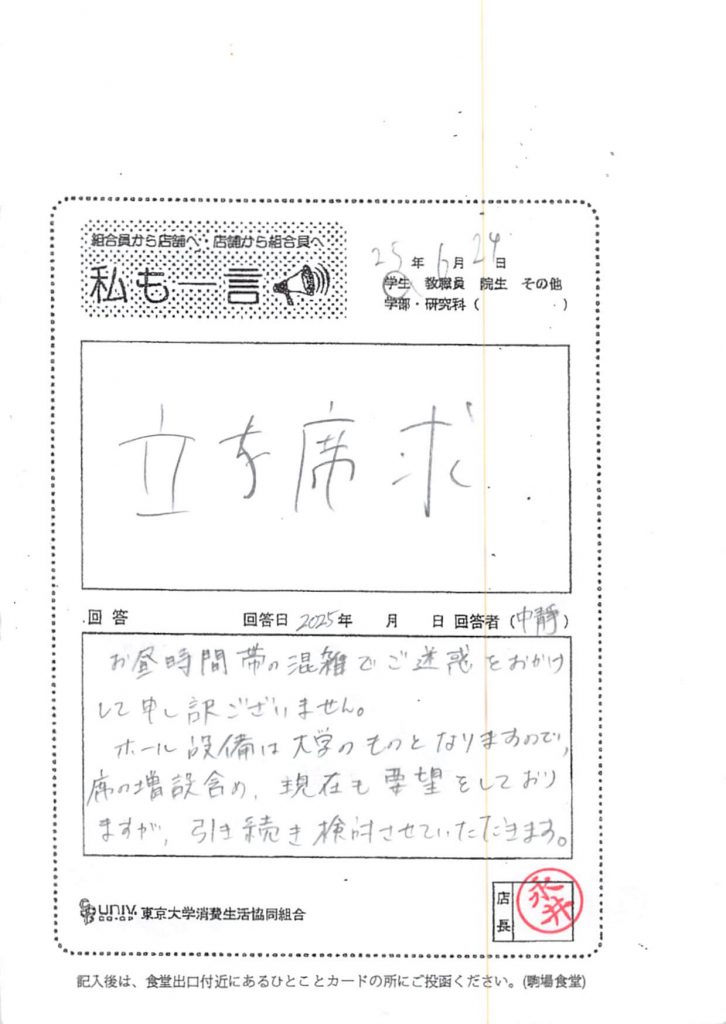 組合員から店舗へ・店舗から組合員へ
私も一言
25年6月24日
学生 教職員 院生 その他
学部・研究科( )
立を席求
回答 回答日 2025年 月 日 回答者(中静)
お昼時間帯の混雑でご迷惑をおかけ
して申し訳ございません。
ホール設備は大学のものとなりますので、
席の増設含め、現在も要望をしており
ますが、引き続き検討させていただきます。
UNIV. CO-OP 東京大学消費生活協同組合
店長 永井
記入後は、食堂出口付近にあるひとことカードの所にご投函ください。(駒場食堂)